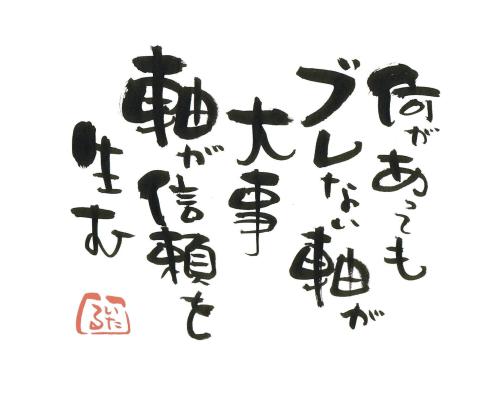 何があっても
ブレない軸が
大事
軸が信頼を
生む
いたる